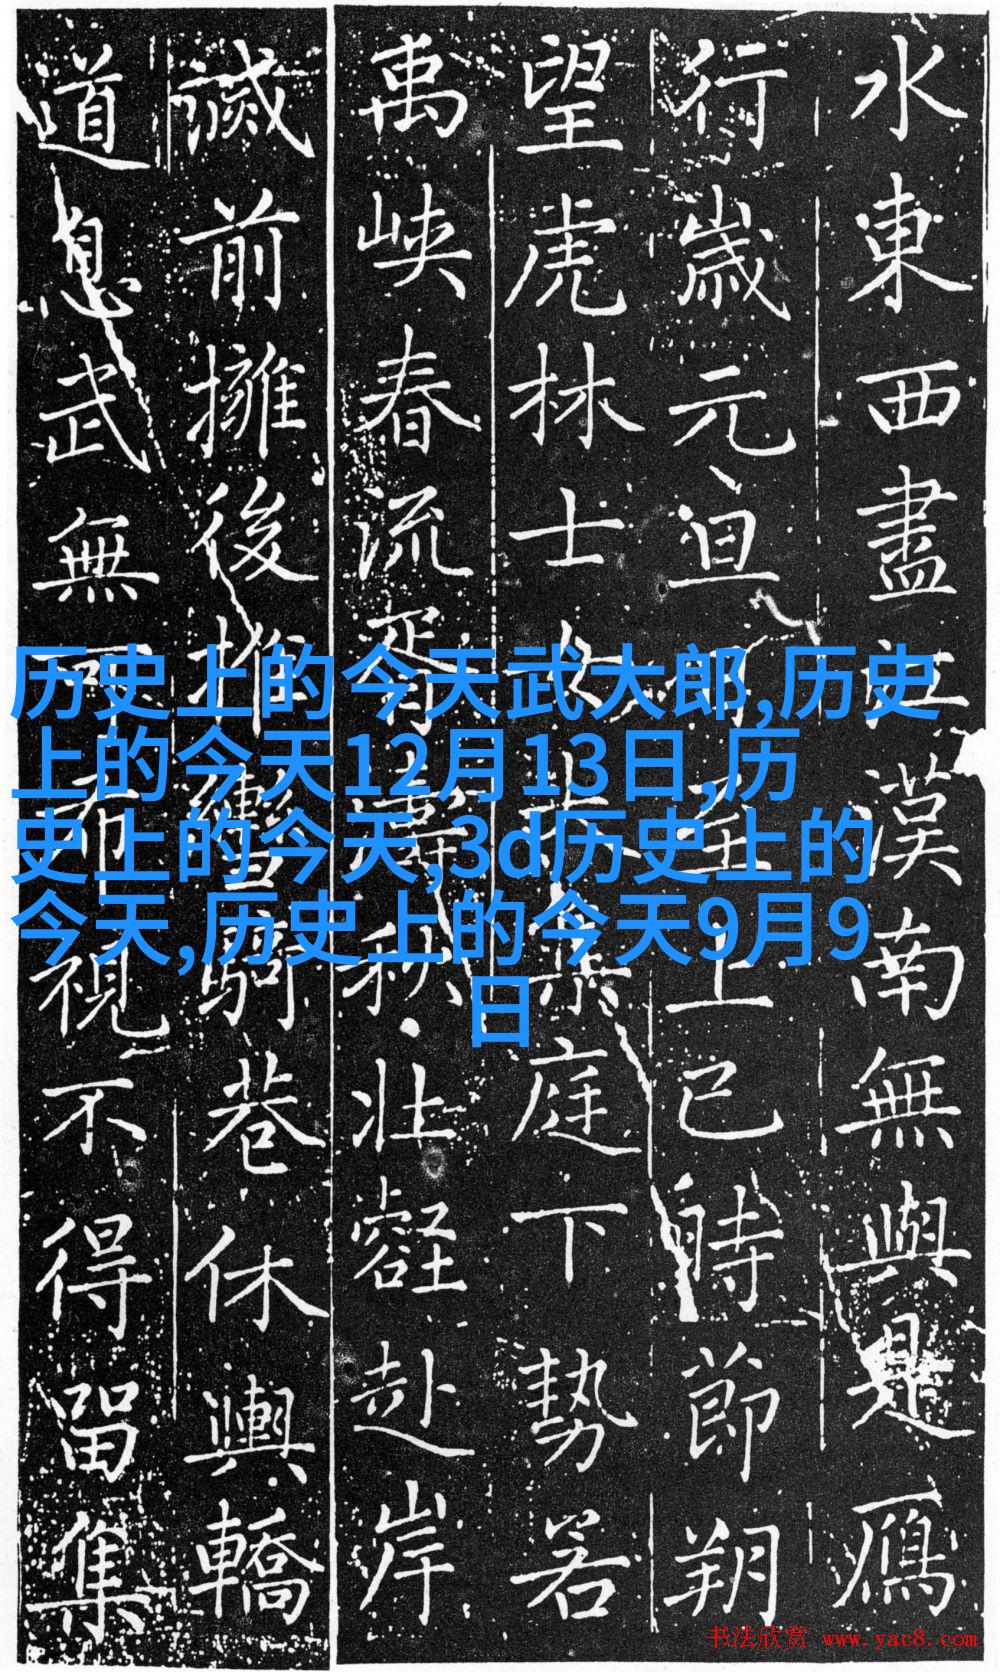 水東西盡漢南無與是鴈
行歲元旦至上巳時節朔
望虎林士女大集庭下勢若
禹峽春流胥濤秋壯壑赴岸
前擁後推巷休輿轎
道息武無可布視不得留集
历史上的今天武大郎,历史
上的今天12月13日,历
史上的今天,3d历史上的
今天,历史上的今天9月9
日
书法欣赏 www.yac8.com